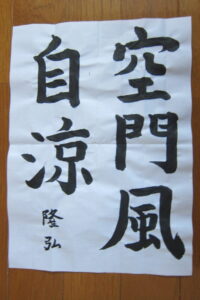 空門風
自涼
隆弘